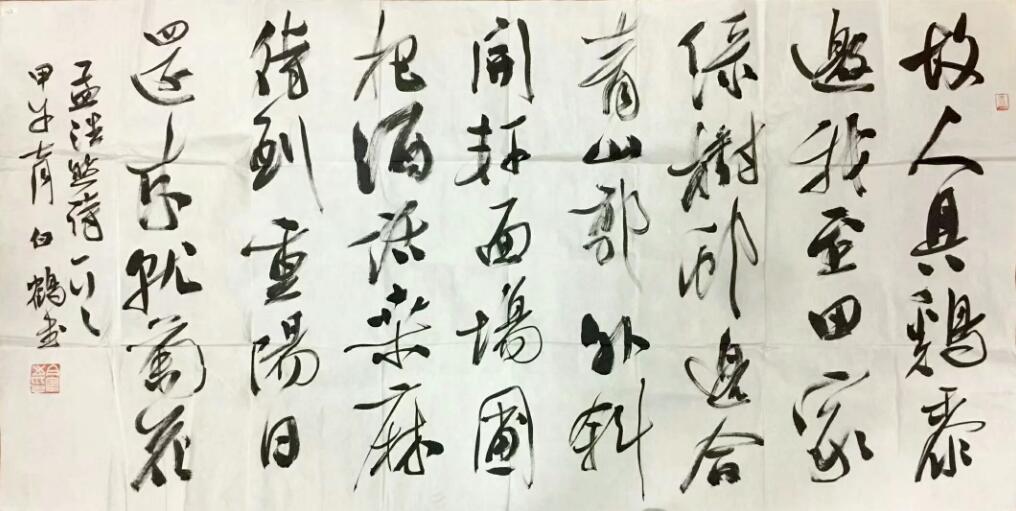 故人具鷄黍
邀我至田家
緑樹邨邊合
青山郭外斜
開軒面場圃
把酒話桑麻
待到重陽日
還來就菊花
孟浩然詩
甲午 白鶴書